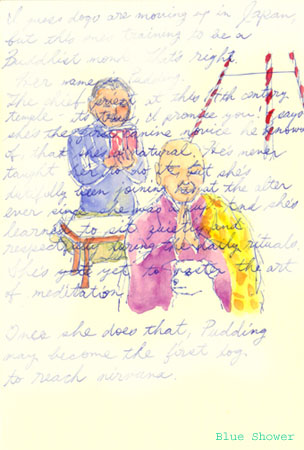 dogs are moving up in Japan,
but this one training to be a
Buddhist monk. that's right
her name is Pudding.
The chief priest at this 7th century
temple to I promise you, says
she's the first canine novice he
of that natural. He's never
taught her to do it, but she's
been joining at the alter
ever since she was a pup and she's
learned to sit quietly and
respectfully during the daily rituals.
She's yet to master the art
of meditation.
Once she does that, Pudding
may become the first dog
to reach nirvana.
Blue Shower